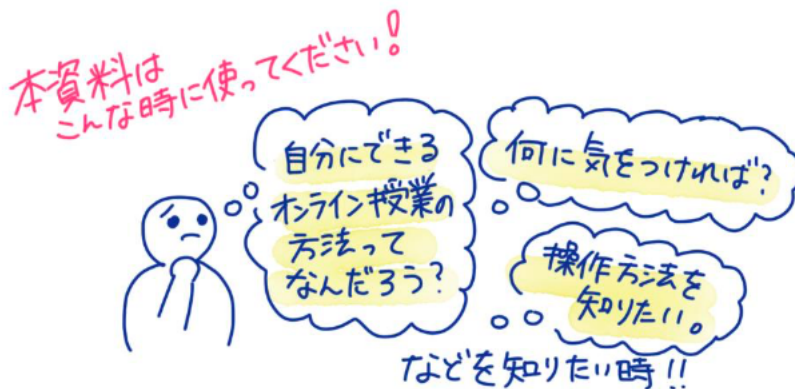 本資料は
こんな時に使ってください!
自分にできる
オンライン授業の
方法って
なんだろう?
何に気をつければ?
操作方法を
知りたい。
などを知りたい時!!